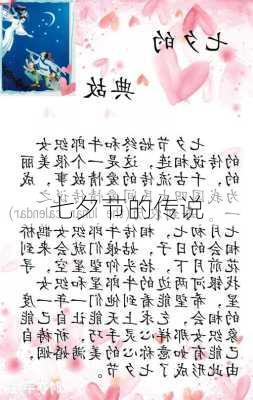 七夕的
典故
七夕节始终和牛郎织女
的传说相连，这是一个很美丽
的，千古流传的爱情故事，成
为我国四大民间爱情传说之
一。
七夕节的传说
七月初七，相传牛郎织女鹊桥
相会的日子，姑娘们就会来到
花前月下，抬头仰望星空，寻
找银河两边的牛郎星和织女
星，希望能看到他们一年一度
的相会，乞求上天能让自己能
象织女那样心灵手巧，祈祷自
己能有如意称心的美满婚姻，
由此形成了七夕节。